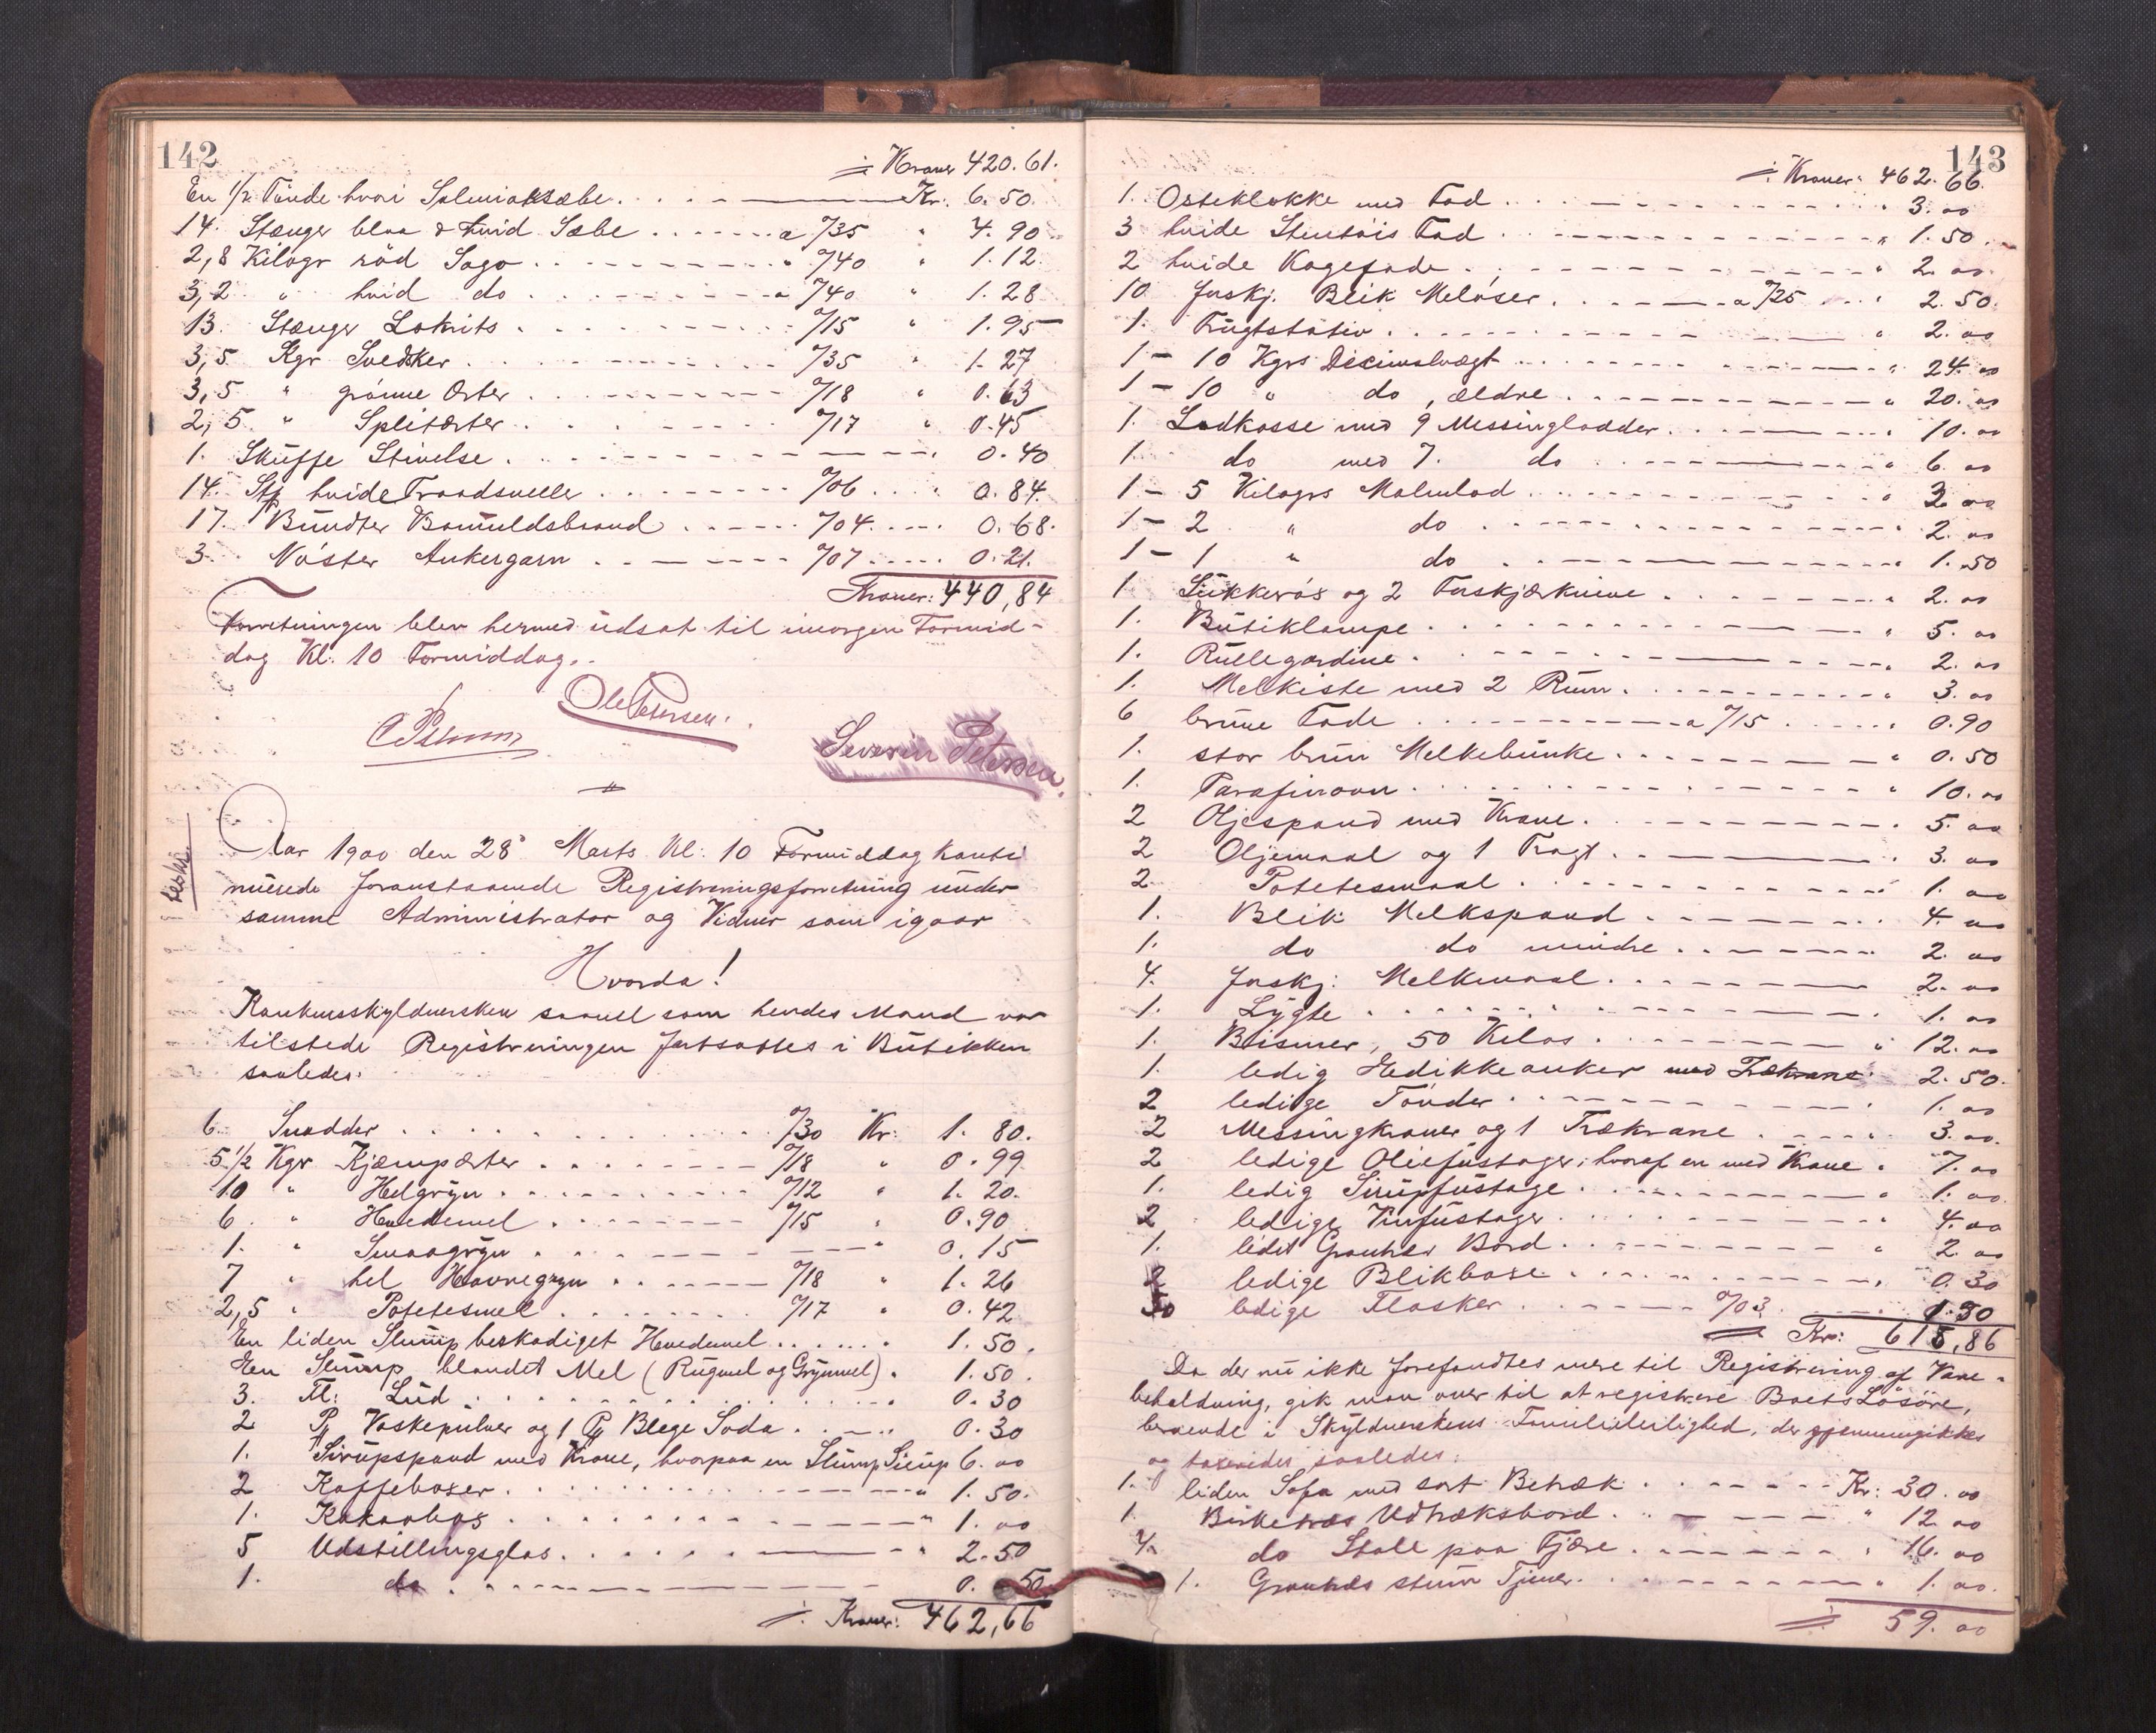 142
⁒ Kroner 420.61.
En 1/2 Tønde hvori Salmiaksæbe . . . . Kr. 6.50.
14. Stænger blaa & hvid Sæbe . . . . a %35 " 4.90
2,8 Kilogr rød Sago . . . . " %40 " 1.12.
3,2 " hvid do . . . . a %40 " 1.28
13. Stænger Lakrits . . . . %15 " 1.95
3,5 Kgr Svedsker . . . . %35 " 1.27
3,5 " grønne Erter . . . . %18 " 0.63
2,5 " Spliterter . . . . %17 " 0.45
1. Skuffe Stivelse . . . . 0.40
14. Stk hvide Traadsneller . . . . %06 . . . . 0.84.
17. Bundter Bomuldsbaand . . . . %04 . . . . 0.68.
3. Nøster Ankergarn . . . . %07 . . . . 0.21.
Kroner: 440,84
Forretningen blev hermed udsat til imorgen Formid-
dag Kl. 10 Formiddag.
Ole Petersen.
Severin Petersen.
Aar 1900 den 28' Marts Kl: 10 Formiddag konti
nuerede foranstaaende Registreringsforretning under
samme Administrator og Vidner som igaar
Hvorda!
Konkursskyldnersken saavel som hendes Mand var
tilstede Registreringen fortsattes i Butikken
saaledes:
6. Snadder . . . . %30 Kr: 1.80.
5 1/2 Kgr Kjæmpeerter . . . . %18 " 0.99
10 " Helgryn . . . . %12 " 1.20.
6. " Hvedemel . . . . %15 " 0.90
1. " Smaagryn . . . . " 0.15
7 " hel Havregryn . . . . %18 " 1.26
2,5 " Potetesmel . . . . %17 " 0.42
En liden Slump beskadiget Hvedemel . . . . 1.50.
En Slump blandet Mel (Rugmel og Grynmel). 1.50.
3. Fl: Lud . . . . 0.30
2 Pk Vaskepulver og 1 Pk Blege Soda . . . . 0.30
1. Sirupspand med Krane, hvorpaa en Slump Sirup 6.00
2 Kaffeboxer . . . . " 1.50.
1. Kakaobox . . . . " 1.00
5 Udstillingsglas . . . . " 2.50
1. do . . . . 0.50
⁒ Kroner: 462,66
143
⁒ Kroner: 462.66.
1. Osteklokke med Fad . . . . " 3.00
3 hvide Stentøis Fad . . . . " 1.50.
2 hvide Kagefade . . . . " 2.00
10 forskj. Blik Meløser . . . . a %25 . . " 2.50.
1. Frugtstativ . . . . " 2.00
1 - 10 Kgrs Decimalvægt . . . . " 24.00
1 - 10 " do , ældre . . . . " 20.00
1. Lodkasse med 9 Messinglodder . . . . " 10.00
1. do med 7. do . . . . " 6.00
1 - 5 Kilogrs Malmlod . . . . " 3.00
1 - 2 " do . . . . 2.00
1 - 1 " do . . . . " 1.50
1. Sukkerøx og 2 Forskjærknive . . . . " 2.00
1. Butiklampe . . . . " 5.00
1. Rullegardine . . . . " 2.00
1. Melkiste med 2 Rum . . . . " 3.00
6 brune Fade . . . . a %15 . . . . " 0.90
1. stor brun Melkebunke . . . . " 0.50
1. Parafinovn . . . . " 10.00
2 Oljespand med Krane . . . . " 5.00
2 Oljemaal og 1 Tragt . . . . " 3.00
2 Potetesmaal . . . . " 1.00
1. Blik Melkspand . . . . 4.00
1. do do mindre . . . . 2.00
4. forskj: Melkemaal . . . . 2.00
1. Lygte . . . . 1.00
1. Bismer, 50 Kilos . . . . " 12.00
1. ledig Eddikeanker med Trækrane 2.50.
2 ledige Tønder . . . . 1.00
2 Messingkraner og 1 Trækrane . . . . " 3.00.
2 ledige Oliefustager, hvoraf en med Krane . 7.00
1. ledig Sirupfustage . . . . " 1.00
2 ledige Vinfustager . . . . " 4.00
1. lidet Grantræs Bord . . . . " 2.00
2 ledige Blikboxe . . . . " 0.30
50 ledige Flasker . . . . %03 . . . . 1.50
Kr: 615,86
Da der nu ikke forefandtes mere til Registrering af Vare-
beholdning, gik man over til at registrere Boets Løsøre,
beroende i Skyldnerskens Familieleilighed, der gjennemgikkes
og taxeredes saaledes:
1. liden Sofa med sort Betræk . . . . Kr: 30.00
1. Birketræs Udtræksbord . . . . " 12.00
4. do Stole paa Fjære . . . . " 16.00
1. Grantræs stum Tjener . . . . " 1.00.
⁒ 59.00